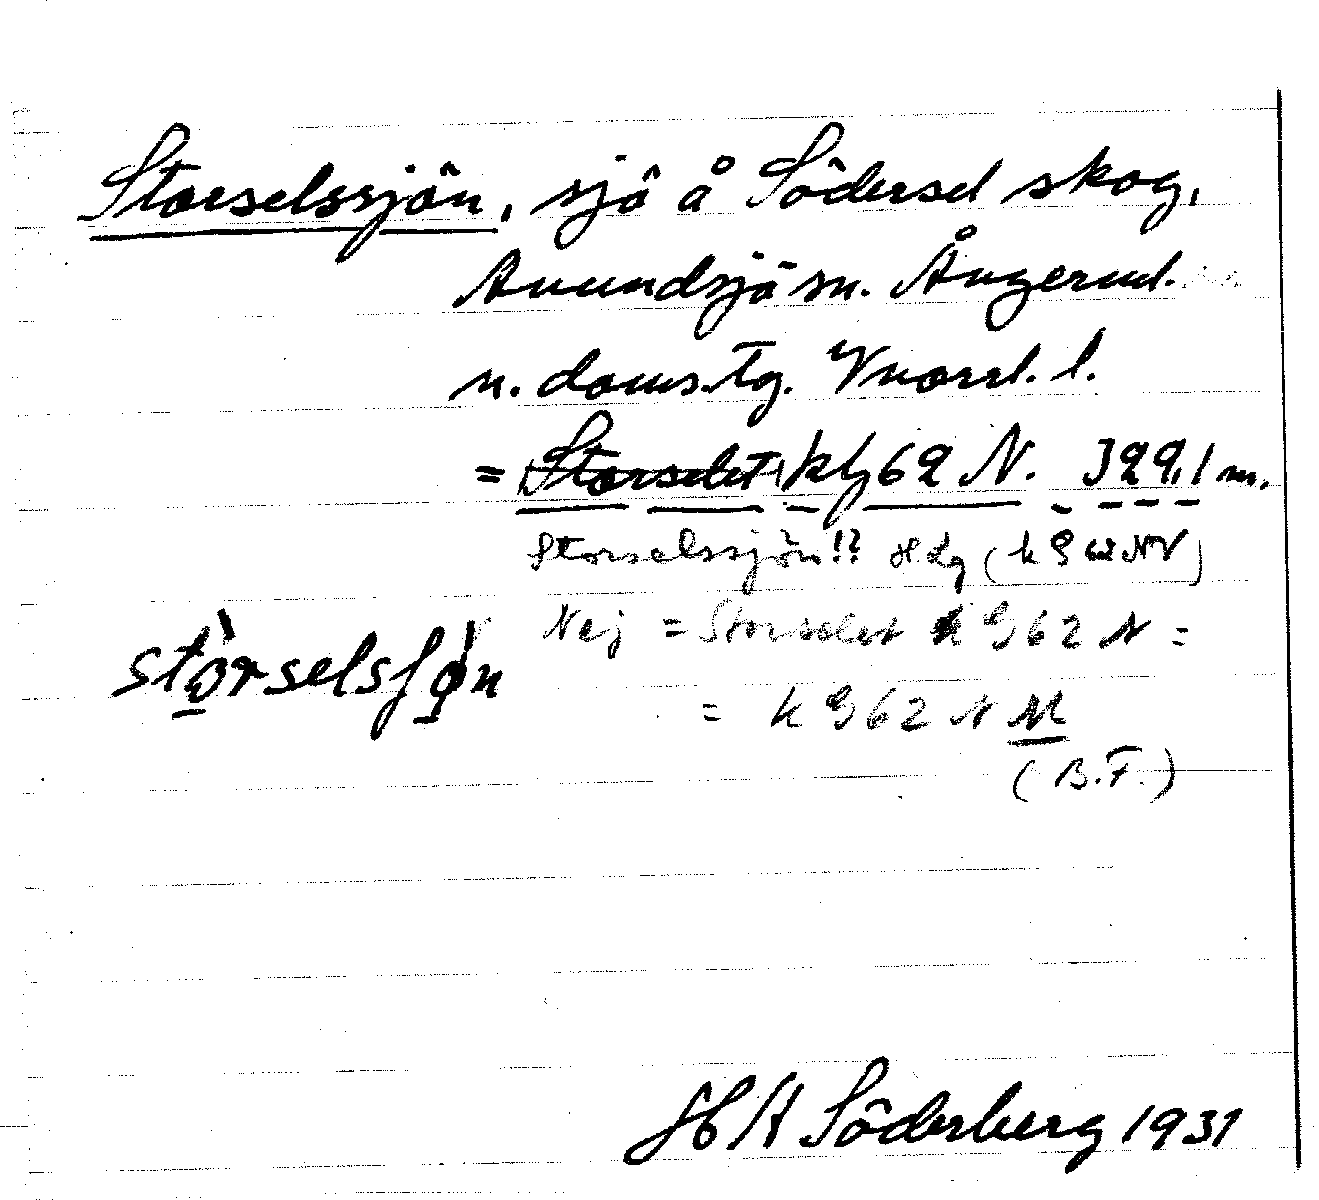 Storselssjön, sjö å Södersel skog,
Anundsjö sn. Ångerml.
n. doms.tg. Vnorrl. l.
= (Storselet) kg 62 N. 329,1 m.
Storselssjön!? Hdg (k g 62 NV)
Nej = Storselet k g 62 N =
= k g 62 N M
(B.F.)
stòrselsʃø̀n
H A Söderberg 1931